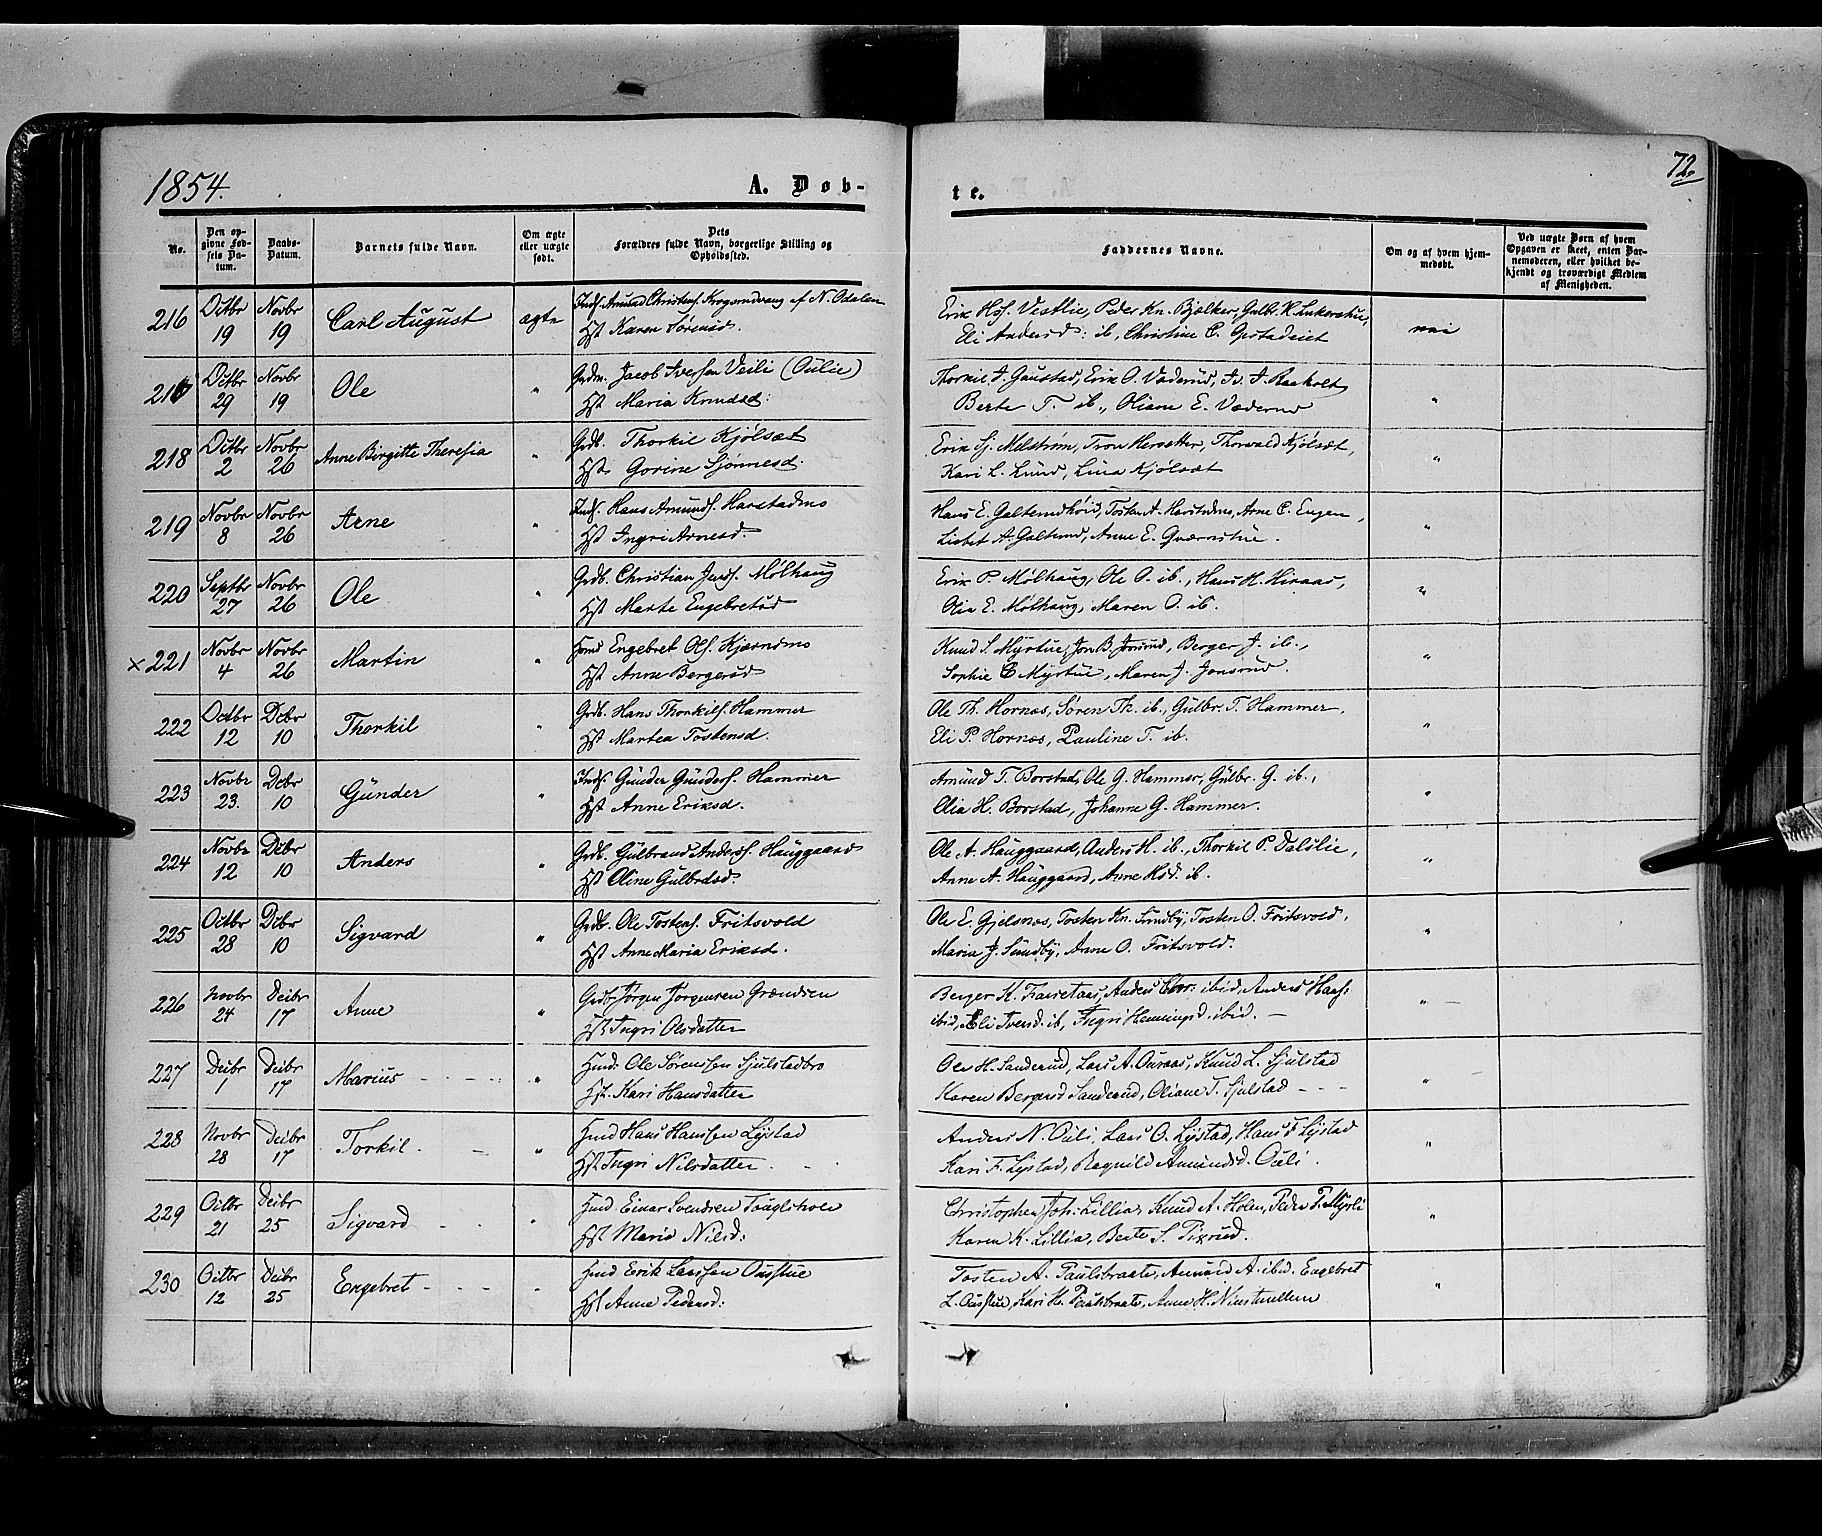 1854.
A. Døb-
te.
72
No.
Den op-
givne Fød-
sels Da-
tum.
Daabs-
Datum.
Barnets fulde Navn.
Om ægte
eller uægte
født.
Dets
Forældres fulde Navn, borgerlige Stilling og
Opholdssted.
Faddernes Navne.
Om og af hvem hjem-
medøbt.
Ved uægte Børn af hvem
Opgaven er skeet, enten Bar-
nemoderen, eller hvilket be-
kjendt og troværdigt Medlem
af Menigheden.
216 Octbr 19 Novbr 19 Carl August ægte Inds. Amund Christens. Krogsrudvang af N. Odalen
Hst Karen Sørensd.
Erik Hs. Vestlie, Peder Kn. Bjælker, Gulbr.
Eli Andersd: ib, Christine C. nei
217 Octbr 29 Novbr 19 Ole " Grdm. Jacob Iversen Veili (Oulie)
Hst Maria Knudsd:
Thorkil J. Gaustad, Erik O. Vaderud, Iv. J. Raaholt
Berte T. ib., Oliane E. Vaderud "
218 Octbr 2 Novbr 26 Anne Birgitte Theresia " Grdb. Thorkil Kjölsæt
Hst. Gorine Sjønnesd.
Erik Sj. Melstrøm, Tron Hersætter, Thorvald Kjölsæt,
Kari L. Lund, Lina Kjölsæt "
219 Novbr 8 Novbr 26 Arne " Inds. Hans Amunds. Harstadmo
Hst Ingri Arnesd.
Hans E. Galterudhöid, Tosten A. Harstadmo, Arne C. Engen,
Lisbet A. Galterud, Anne E. Quernstue. "
220 Septbr 27 Novbr 26 Ole " Grdb. Christian Jens. Mølhaug
Hst Marte Engebretsd
Erik P. Mølhaug, Ole O. ib., Hans H. Hiraas,
Olia E. Mølhaug, Maren O. ib. "
× 221 Novbr 4 Novbr 26 Martin " Hmd Engebret Ols. Kjærndmo
Hst Anne Bergersd
Knud S. Myrtue, Jon B. Jonsrud, Berger J. ib.,
Sophie C Myrtue, Maren J. Jonsrud. "
222 Octbr 12 Dcbr 10 Thorkil " Grdb. Hans Thorkils. Hammer
Hst Martea Tostensd.
Ole Th. Hornæs, Søren Th. ib., Gulbr. T. Hammer,
Eli P. Hornæs, Pauline T. ib. "
223 Novbr 23. Dcbr 10 Gunder " Inds. Gunder Gunders. Hammer
Hst Anne Eriksd.
Amund T. Borstad, Ole G. Hammer, Gulbr. G. ib.,
Olia H. Borstad, Johanne G. Hammer. "
224 Novbr 12 Dcbr 10 Anders " Grdb. Gulbrand Anders. Hauggaard
Hst Oline Gulbrdsd.
Ole A. Hauggaard, Anders H. ib., Thorkil P. Dalslie,
Anne A. Hauggaard, Anne Hsd. ib. "
225 Octbr 28 Dcbr 10 Sigvard " Grdb. Ole Tostens. Fritsvold
Hst Anne Maria Eriksd.
Ole E. Gjelsnæs, Tosten Kn. Sundby, Tosten O. Fritsvold,
Maria J. Sundby, Anne O. Fritsvold. "
226 Novbr 24 Decbr 17 Anne " Grdb. Jørgen Jørgensen Grændsen
Hst Ingri Olsdatter
Berger K. Anders Chr: ibid, Anders Hans:
ibid, Eli Iversd. ib, Ingri Hemmingsd. ibid. — "
227 Decbr 1 Decbr 17 Marius " Hmd: Ole Sørensen Sjulstadbro
Hst. Kari Hansdatter
Ole H. Sanderud, Lars A. Knud L. Sjulstad
Karen Bergersd Sanderud, Oliane T. Sjulstad "
228 Novbr 28 Decbr 17 Torkil " Hmd Hans Hansen Lystad
Hst. Ingri Nilsdatter
Anders N. Ouli, Lars O. Lystad, Hans F Lystad
Kari F. Lystad, Ragnild Amundsd. Ouli. "
229 Octbr 21 Decbr 25 Sigvard " Hmd. Einar Svendsen
Hst Maria Nilsd:
Christopher Joh: Lillia, Knud A. Holen, Peder P. Myrli
Karen K. Lillia, Berte S. Pixrud. "
230 Octbr 12 Decbr 25 Engebret " Hmd Erik Larssen Ousstue
Hst Anne Pedersd:
Tosten A. Paulsbraate, Amund A. ibid. Engebret
L. Ousstue, Kari H. Paulsbraate, Anne H.